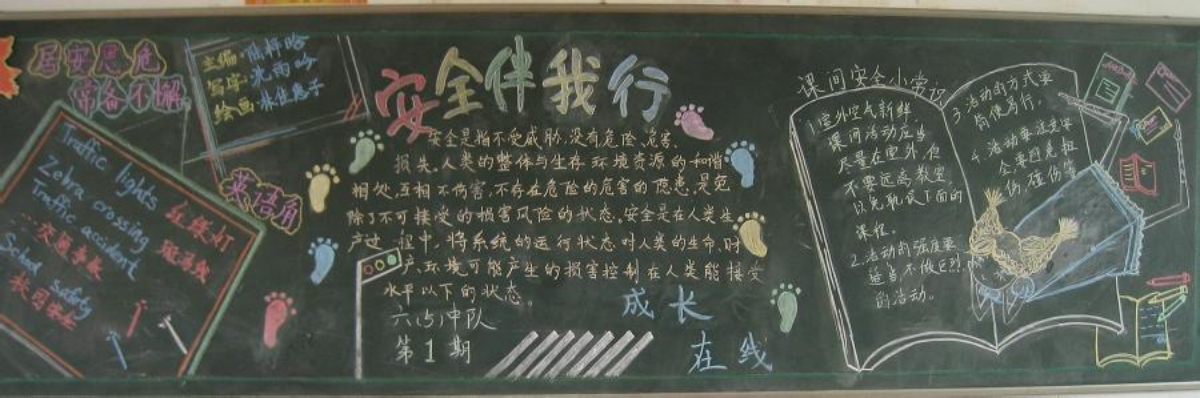 居安思危
常备不懈
主编:
写字:
绘画:
Traffic lights 红绿灯
Zebra crossing 斑马线
Traffic accident
...交通事故
School safety
校园安全
英语角
安全伴我行
安全是指不受威胁,没有危险、危害、
损失。人类的整体与生存环境资源的和谐
相处,互相不伤害,不存在危险的危害的隐患,是免
除了不可接受的损害风险的状态。安全是在人类生
产过程中,将系统的运行状态对人类的生命、财
产、环境可能产生的损害控制在人类能接受
水平以下的状态。
六(5)中队
第1期
成长
在线
课间安全小常识
1.室外空气新鲜,
课间活动应当
尽量在室外,但
不要远离教室,
以免耽误下面的
课程。
2.活动的强度要
适当,不做
的活动。
3.活动的方式要
简便易行。
4.活动要注意安
全,要避免扭
伤,碰伤等